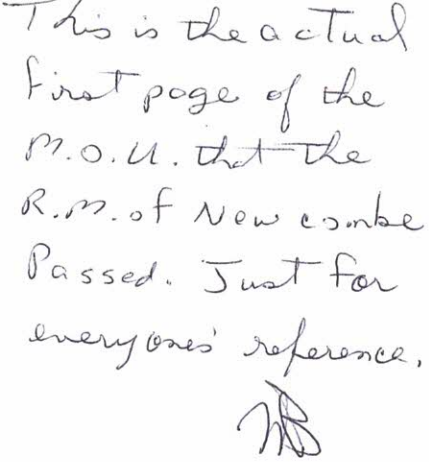 This is the actual
first page of the
M.O.U. that the
R.M. of Newcombe
Passed. Just for
everyones' reference.